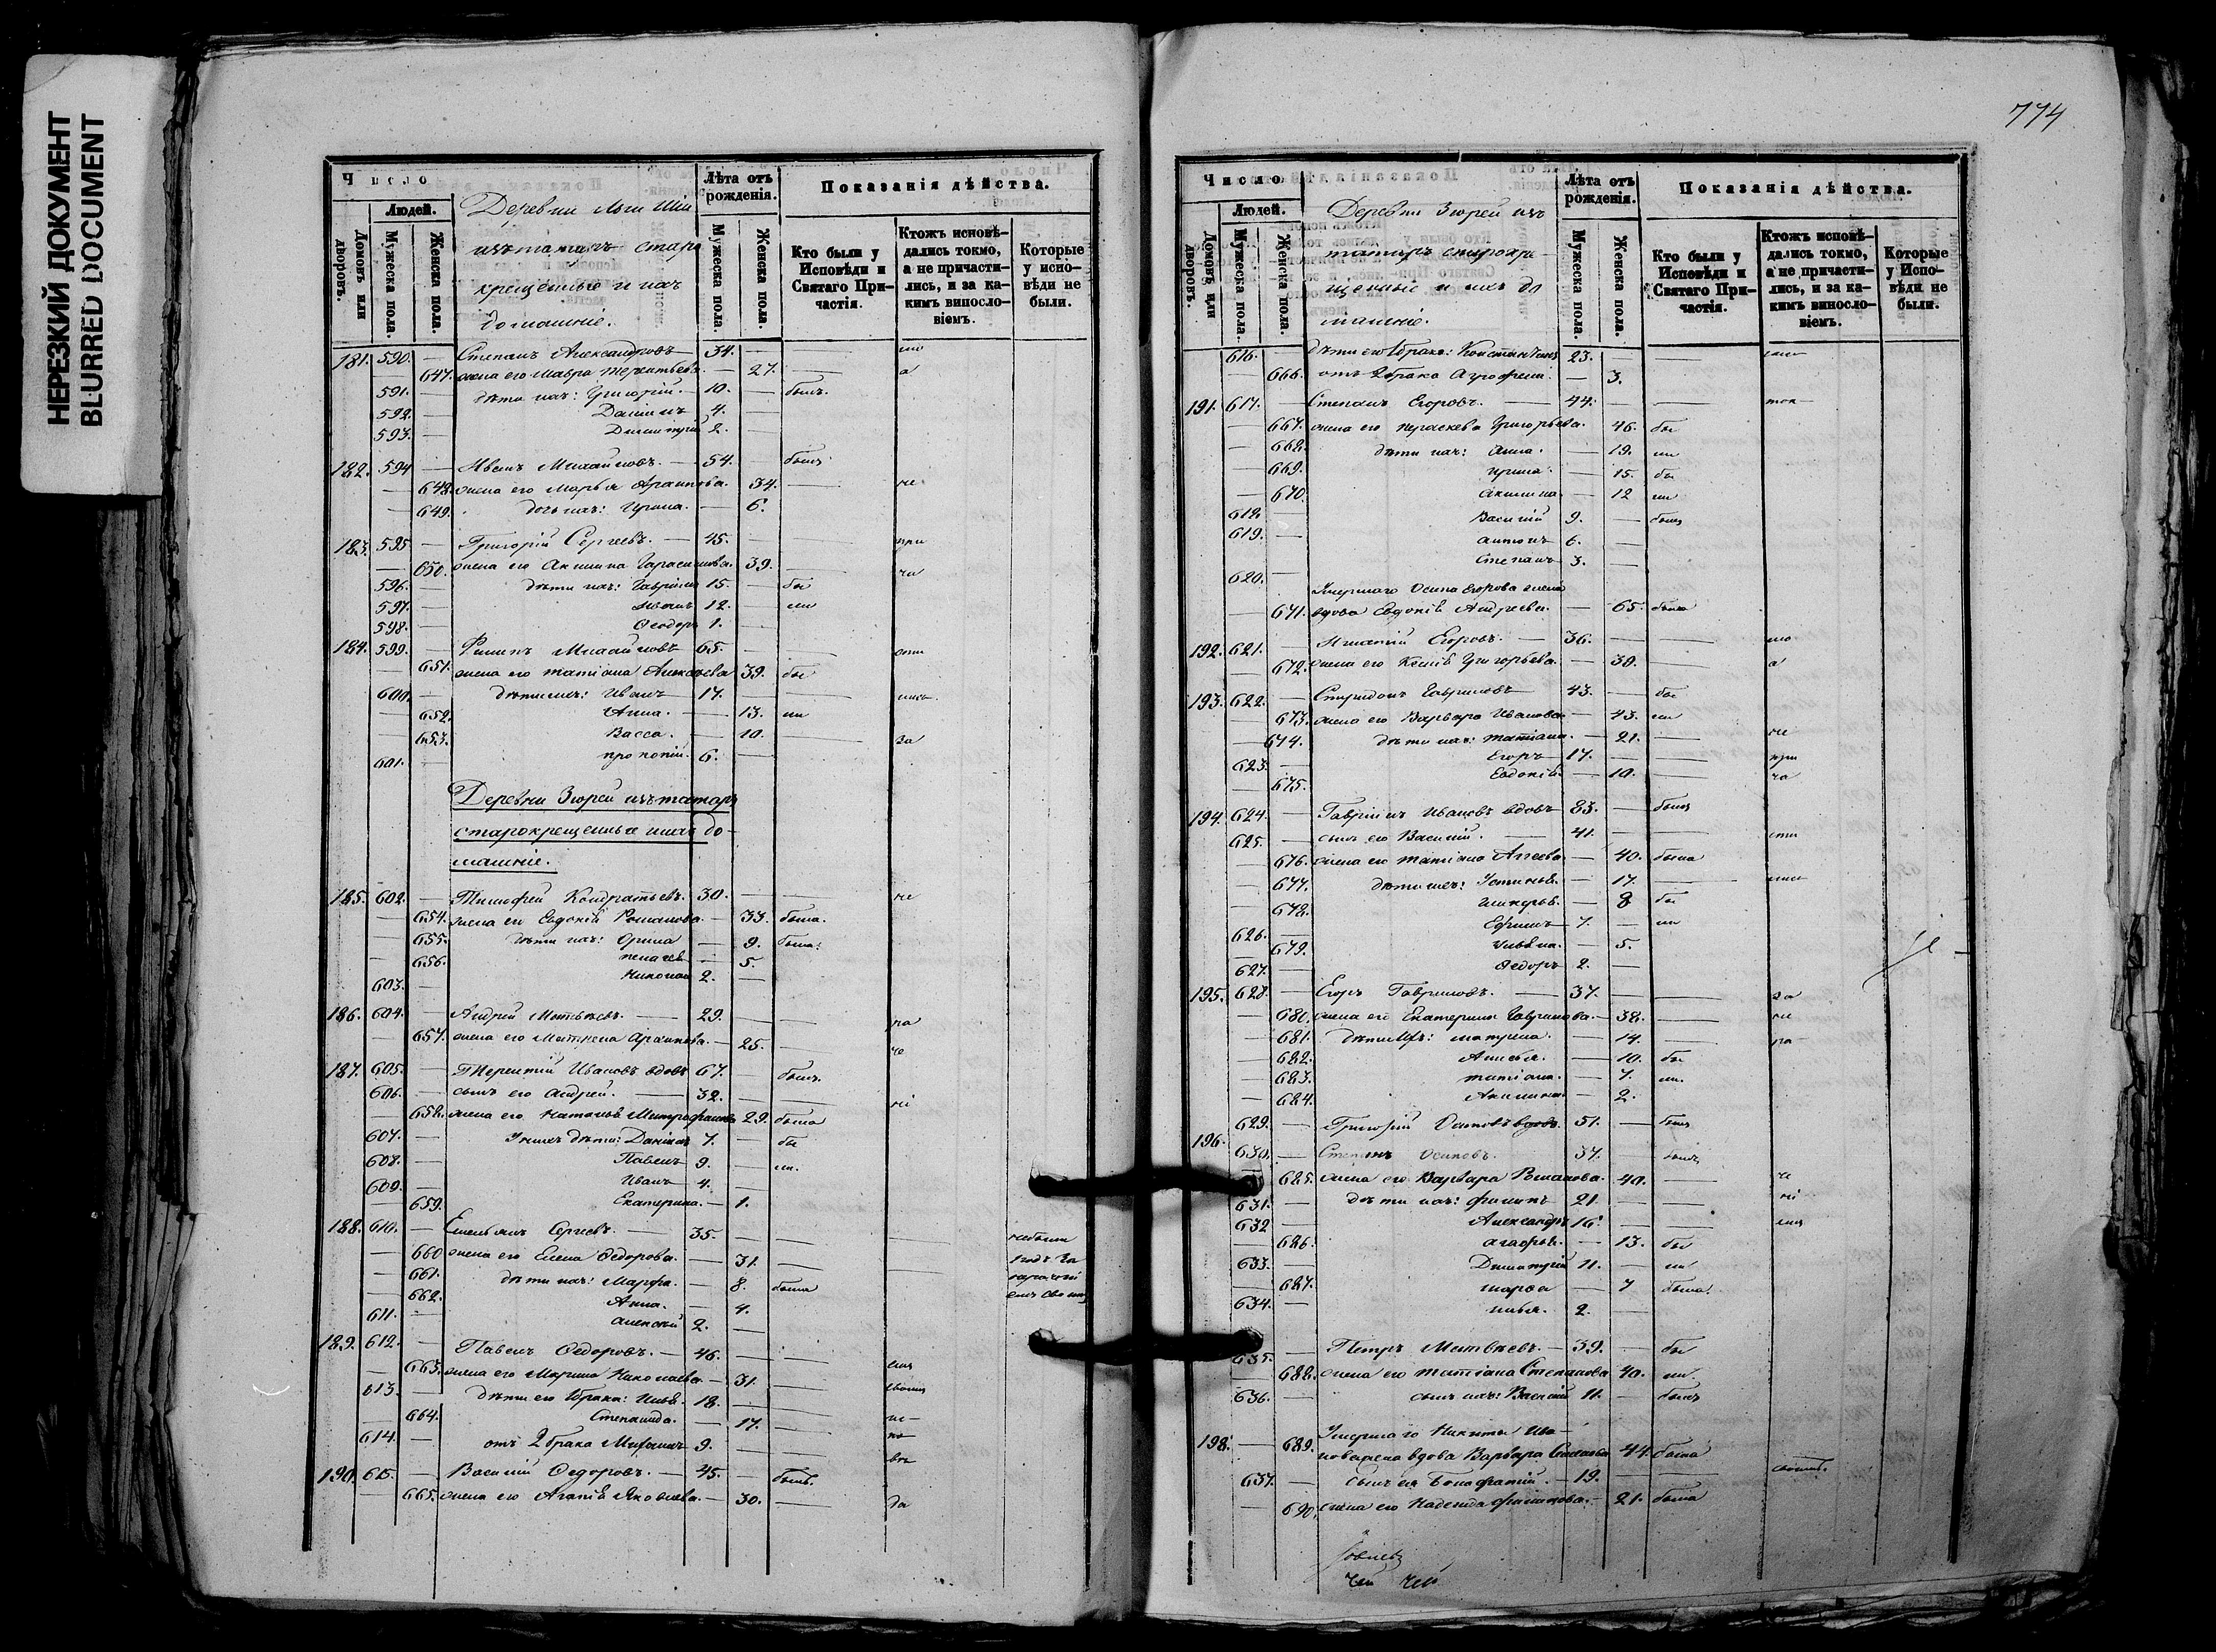 НЕРЕЗКИЙ ДОКУМЕНТ
BLURRED DOCUMENT
Число
Людей.
Домовъ или дворовъ.
Мужеска пола.
Женска пола.
Деревни
изъ татаръ старо
крещеные и ихъ
домашніе.
Лѣта отъ рожденія.
Мужеска пола.
Женска пола.
Показанія дѣйства.
Кто были у Исповѣди и Святаго Причастія.
Ктожъ исповѣдались токмо, а не причастились, и за какимъ винословіемъ.
Которые у исповѣди не были.
181. 590. — Степанъ Александровъ — 34. —
— 647. жена его Мавра Терентьева — 27.
591. — дѣти ихъ: Григорій. — 10. — былъ.
592. — Даніилъ 4. —
593. — Димитрій 2. —
182. 594 — Иванъ Михайловъ. — 54. — былъ
— 648. жена его Марья Архипова. 34. — не
— 649. дочь ихъ: Ирина. — 6.
183. 595 — Григорій Сергеевъ. — 45. — при
— 650. жена его Акилина Гарасимова. 39. — ча
596. — дѣти ихъ: Гавріилъ 15. — бы
597. — Иванъ 12. — ли
598. — Ѳеодоръ 1. —
184. 599. — Филипъ Михайловъ 65. —
— 651. жена его Татіана Алексѣева 39. бы
600. — дѣти ихъ: Иванъ 17. —
— 652. Анна. — 13. ли
— 653. Васса. — 10. — за
601. — Прокопій. 6. —
Деревни Зюрей изъ татаръ
старокрещеные и ихъ до-
машніе.
185. 602. — Тимофей Кондратьевъ. 30. — не
— 654. жена его Евдокія Романова. — 33. была.
— 655. дѣти ихъ: Орина — 9. была.
— 656. Пелагея — 5.
603. — Николай 2. —
186. 604. — Андрей Матвѣевъ. — 29. — ра
— 657. жена его Матрена Архипова. — 25. — че
187. 605. — Терентій Ивановъ вдовъ 67. — былъ.
606. — сынъ его Андрей. — 32. —
— 658. жена его Наталья Митрофанова 29. была
607. — У нихъ дѣти: Даніилъ 7. — бы
608. — Павелъ 9. — ли.
609. — Иванъ 4. —
— 659. Екатерина. — 1.
188. 610. — Емельянъ Сергѣевъ — 35. — небыли
— 660 жена его Елена Ѳедорова. — 31. —
— 661. дѣти ихъ: Марфа. — 8. была
— 662. Анна. — 4.
611. — Алексѣй 2. —
189. 612. — Павелъ Ѳедоровъ. — 46. —
— 663. жена его Марина Николаева — 31. —
613. — дѣти его 1брака: Илья. 18. —
— 664. Степанида. — 17. —
614. — отъ 2 брака Михаилъ 9. —
190. 615. — Василій Ѳедоровъ. — 45. — былъ.
— 665. жена его Агапія Яковлева. — 30. —
774
Число
Людей.
Домовъ или дворовъ.
Мужеска пола.
Женска пола.
Деревни Зюрей изъ
татаръ старокре-
щенные и ихъ до
машніе.
Лѣта отъ рожденія.
Мужеска пола.
Женска пола.
Показанія дѣйства.
Кто были у Исповѣди и Святаго Причастія.
Ктожъ исповѣдались токмо, а не причастились, и за какимъ винословіемъ.
Которые у Исповѣди не были.
616. — дѣти его 1брака: Константинъ 23. —
— 666. отъ 2брака Агрофена. — 3.
191. 617. — Степанъ Егоровъ. — 44. —
— 667. жена его Параскева Григорьева. 46. бы
— 668. дѣти ихъ: Анна. — 19. ли
— 669. Ирина. — 15. бы
— 670. Акилина. — 12 ли
618. Василій 9. — былъ
619. — Антонъ 6. —
620. — Степанъ 3. —
Умершаго Осипа Егорова жена
— 671. вдова Евдокія Андреева. — 65. была
192. 621. — Игнатій Егоровъ. — 36. —
— 672. жена его Ксенія Григорьева. — 30. —
193. 622. — Спиридонъ Гавриловъ 43. — бы
— 673. жена его Варвара Иванова — 43. ли
— 674. дѣти ихъ: Татіана. — 21. — не
623. — Егоръ 17. — при
— 675. Евдокія. — 10. — ча
194. 624. — Гавріилъ Ивановъ вдовъ 83. — былъ
625. — сынъ его Василій. — 41. —
— 676. жена его Татіана Агеева — 40. была
— 677. дѣти ихъ: Устинья. — 17. —
— 678. Гликерья. — 8 бы
626. — Ефимъ 7. — ли
— 679. Ульяна. — 5.
627. — Ѳедоръ 2. —
195. 628. — Егоръ Гавриловъ. — 37. — за
— 680. жена его Екатерина Гаврилова. — 38. —
— 681. дѣти ихъ: Матрена. — 14. — ра
— 682. Анисья. — 10. бы
— 683. Татіана. — 7. ли.
— 684. Акилина — 2.
629. — Григорій Осиповъ вдовъ 51. — былъ
196. 630. — Степанъ Осиповъ. 37. — былъ
— 685. жена его Варвара Романова. 40. —
631. — дѣти ихъ: Филипъ 21. —
632 — Александръ 16. —
— 686. Агафья. — 13. бы
633. — Димитрій 11. — ли
— 687. Марѳа — 7 была.
634. — Илья. 2. —
635. — Петръ Матвѣевъ. — 39. — бы
— 688. жена его Татіана Степанова 40. ли
636. — сынъ ихъ: Василій 11. — былъ
Умершаго Никиты Ива-
198. — 689. нова жена вдова Варвара 44. была
637. — Сынъ ея Бонифатій. — 19. —
— 690. жена его Надежда Филипова. — 21. была